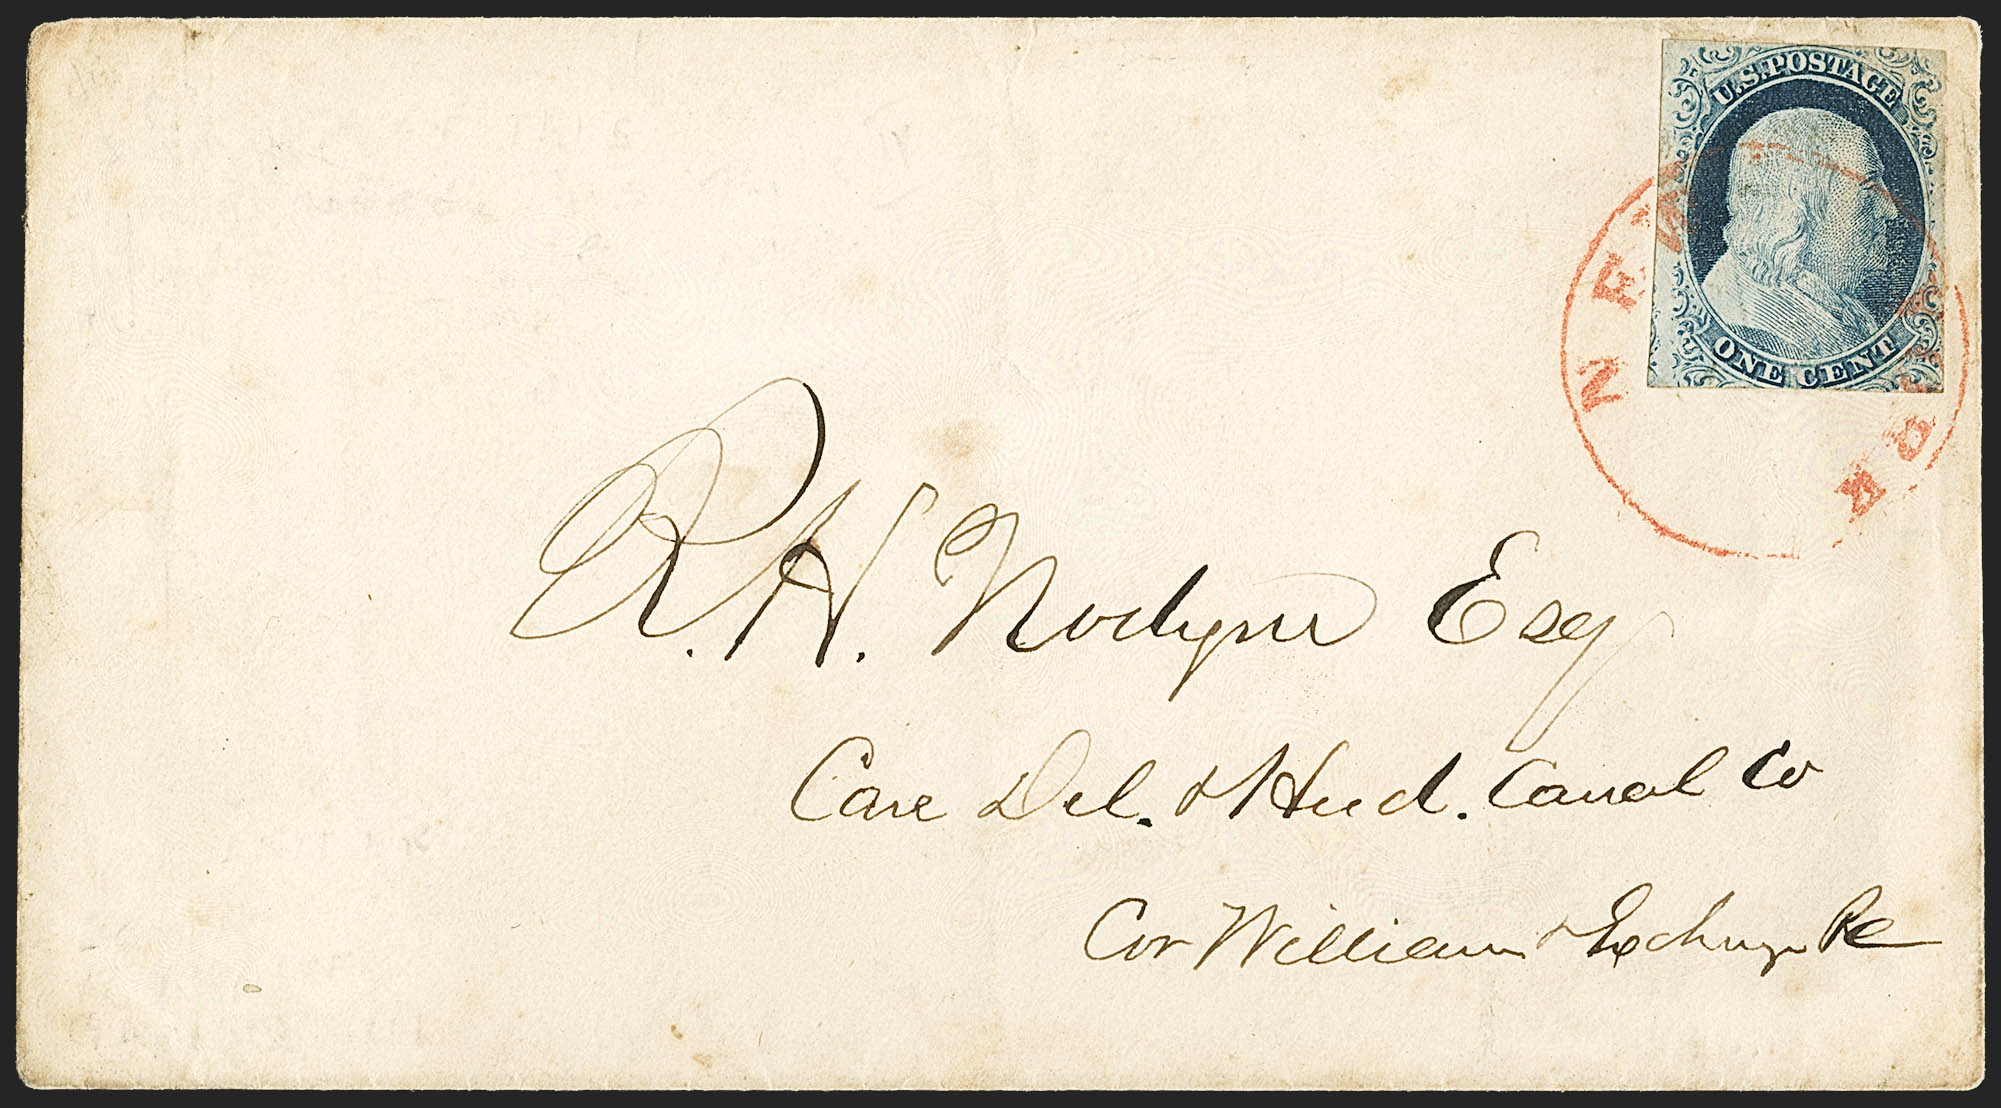 U.S. POSTAGE
ONE CENT
NEW YORK
R. H. Esq
Care Del. & Hud. Canal Co
Cor William & Exchange Pl